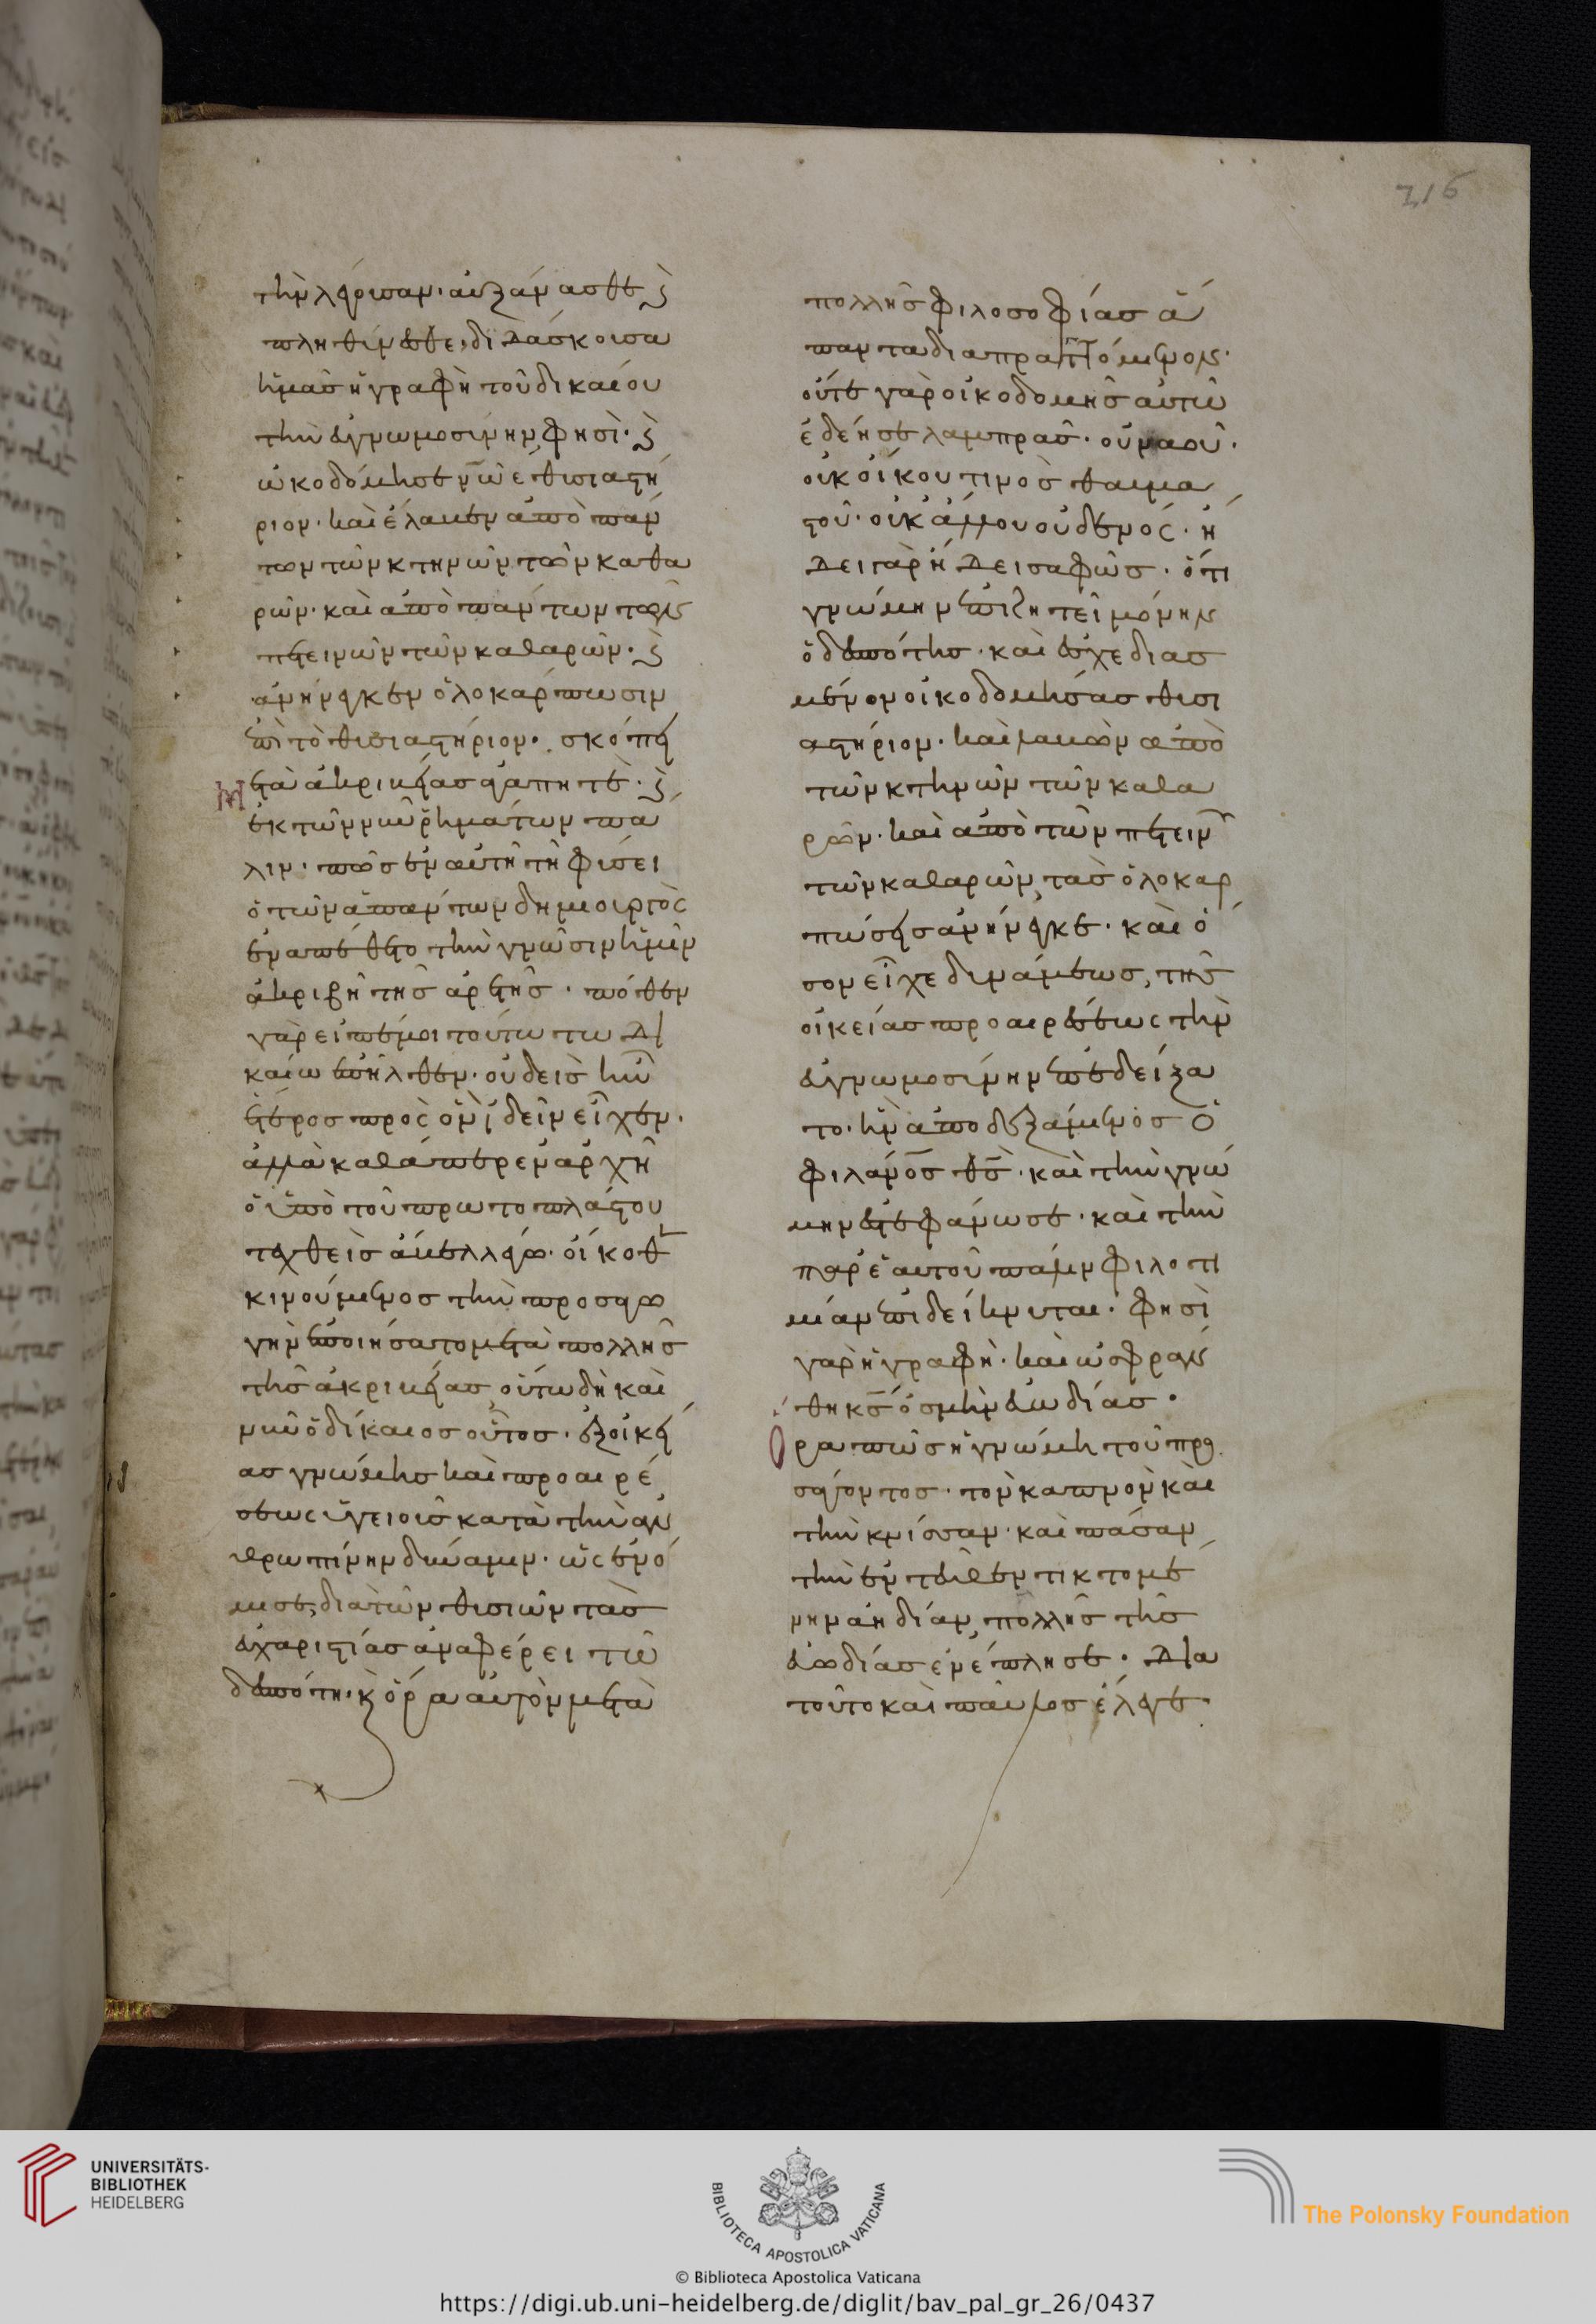 216
τὴν λέγουσαν· αὐξάνεσθε ϗ
πληθύνεσθε, διδάσκουσα
ἡμᾶς ἡ γραφὴ τοῦ δικαίου
τὴν εὐγνωμοσύνην φησὶ· ϗ
ὠκοδόμησε νῶε θυσιαστή
ριον· καὶ ἔλαβεν ἀπὸ πάν
των τῶν κτηνῶν τῶν καθα
ρῶν· καὶ ἀπὸ πάντων τῶν
πετεινῶν τῶν καθαρῶν· ϗ
ἀνήνεγκεν ὁλοκάρπωσιν
ἐπὶ τὸ θυσιαστήριον· σκόπει
μετὰ ἀκριβείας ἀγαπητὲ· ϗ
ἐκ τῶν νῦν ῥημάτων πά
λιν· πῶς ἐν αὐτῆ τῆ φύσει
ὁ τῶν ἁπάντων δημιουργὸς
ἐναπέθετο τὴν γνῶσιν ἡμῖν
ἀκριβῆ τῆς ἀρετῆς· πόθεν
γὰρ εἰπέ μοι τούτω τῶ δι
καίω ἐπῆλθεν· οὐδεὶς ἦν
ἕτερος πρὸς ὃν ἰδεῖν εἶχεν·
ἀλλὰ καθάπερ ἐν ἀρχῆ
ὁ ὑπὸ τοῦ πρωτοπλάστου
τεχθεὶς ἄβελ λέγω· οἴκοθ
κινούμενος τὴν προσαγω
γὴν ἐποιήσατο μετὰ πολλῆς
τῆς ἀκριβείας οὕτω δὴ καὶ
νῦν ὁ δίκαιος οὗτος· ἐξ οἰκεί
ας γνώμης καὶ προαιρέ
σεως ὑγειοῦς κατὰ τὴν ἀν
θρωπίνην δύναμιν· ὡς ἐνό
μισε, διὰ τῶν θυσιῶν τὰς
εὐχαριστίας ἀναφέρει τῶ
δεσπότη· ϗ ὅρα αὐτὸν μετὰ
πολλῆς φιλοσοφίας ἅ
παντα διαπραττόμενον·
οὔτε γὰρ οἰκοδομῆς αὐτῶ
ἐδέησε λαμπρᾶς· οὐ ναοῦ·
οὐκ οἴκου τινὸς θαυμα
στοῦ· οὐκ ἄλλου οὐδενός· ἤ
δει γὰρ ἤδει σαφῶς· ὅτι
γνώμην ἐπιζητεῖ μόνην
ὁ δεσπότης· καὶ ἐσχεδιασ
μένον οἰκοδομήσας θυσι
αστήριον· καὶ λαβὼν ἀπὸ
τῶν κτηνῶν τῶν καθα
ρῶν· καὶ ἀπὸ τῶν πετεινῶν
τῶν καθαρῶν, τὰς ὁλοκαρ
πώσεις ἀνήνεγκε· καὶ ὅ
σον εἶχε δυνάμεως, τῆς
οἰκείας προαιρέσεως τὴν
εὐγνωμοσύνην ἐπεδείξα
το· ἣν ἀποδεξάμενος ὁ
φιλανος θς· καὶ τὴν γνώ
μην ἐστεφάνωσε· καὶ τὴν
παρ' ἑαυτοῦ πάλιν φιλοτι
μίαν ἐπιδείκνυται· φησὶ
γὰρ ἡ γραφὴ· καὶ ὠσφράν
θη κς ὀσμὴν εὐωδίας·
ὅρα πῶς ἡ γνώμη τοῦ προ
σάγοντος· τὸν καπνὸν καὶ
τὴν κνίσσαν· καὶ πᾶσαν
τὴν ἐντεῦθεν τικτομέ
νην ἀηδίαν, πολλῆς τῆς
εὐωδίας ἐνέπλησε· διὰ
τοῦτο καὶ παῦλος ἔλεγε·
UNIVERSITÄTS-
BIBLIOTHEK
HEIDELBERG
BIBLIOTECA APOSTOLICA VATICANA
The Polonsky Foundation
© Biblioteca Apostolica Vaticana
https://digi.ub.uni-heidelberg.de/diglit/bav_pal_gr_26/0437